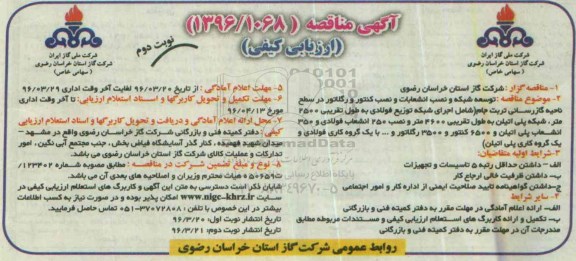 آگهی مناقصه (۱۳۹۶/۱۰۶۸)
(ارزیابی کیفی)
نوبت دوم
شرکت ملی گاز ایران
شرکت گاز استان خراسان رضوی
(سهامی خاص)
شرکت ملی گاز ایران
شرکت گاز استان خراسان رضوی
(سهامی خاص)
۱- مناقصه گزار: شرکت گاز استان خراسان رضوی
۲- موضوع مناقصه: توسعه شبکه و نصب انشعابات و نصب کنتور و رگلاتور در سطح
ناحیه گازرسانی تربت جام(شامل اجرای شبکه توزیع فولادی به طول تقریبی ۲۵۰۰
متر، شبکه پلی اتیلن به طول تقریبی ۲۶۰۰۰ متر و نصب ۲۵۰ انشعاب فولادی و ۳۵۰۰
انشعاب پلی اتیلن و ۶۵۰۰ کنتور و ۳۵۰۰ رگلاتور و ... با یک گروه کاری فولادی و
یک گروه کاری پلی اتیلن)
۳- شرایط اولیه متقاضیان:
الف- داشتن حداقل رتبه ۵ تاسیسات و تجهیزات
ب- داشتن ظرفیت خالی ارجاع کار
ج- داشتن گواهینامه تایید صلاحیت ایمنی از اداره کار و امور اجتماعی
۴- سایر شرایط:
الف- ارائه اعلام آمادگی در مهلت مقرر به دفتر کمیته فنی و بازرگانی
ب- تکمیل و ارائه کاربرگ های استعلام ارزیابی کیفی و مستندات مربوطه مطابق
مندرجات آن در مهلت مقرر به دفتر کمیته فنی و بازرگانی
۵- مهلت اعلام آمادگی: از تاریخ ۹۶/۰۳/۲۰ لغایت آخر وقت اداری ۹۶/۰۳/۲۹
۶- مهلت تکمیل و تحویل کاربرگها و اسناد استعلام ارزیابی: تا آخر وقت اداری
مورخ ۹۶/۰۴/۱۳
۷- محل ارائه اعلام آمادگی و دریافت و تحویل کاربرگها و اسناد استعلام ارزیابی
کیفی: دفتر کمیته فنی و بازرگانی شرکت گاز خراسان رضوی واقع در مشهد -
میدان شهید فهمیده، کنار گذر آسایشگاه فیاض بخش، جنب مجتمع آبی نگین، امور
تدارکات و عملیات کالای شرکت گاز استان خراسان رضوی می باشد.
۸- نوع و مبلغ تضمین شرکت در مناقصه: مطابق مصوبه شماره ۱۲۳۴۰۲/
ت۵۰۶۵۹ه هیات محترم وزیران و اصلاحیه های بعدی آن می باشد.
شایان ذکر است دسترسی به متن این آگهی و کاربرگ های استعلام ارزیابی کیفی در
سایت www.nigc-khrz.ir امکان پذیر بوده و در صورت نیاز به کسب اطلاعات
بیشتر در این خصوص با تلفن ۳۷۰۷۲۸۰۸-۰۵۱ تماس حاصل فرمایید.
تاریخ انتشار نوبت اول: ۹۶/۳/۲۰
تاریخ انتشار نوبت دوم: ۹۶/۳/۲۱
روابط عمومی شرکت گاز استان خراسان رضوی